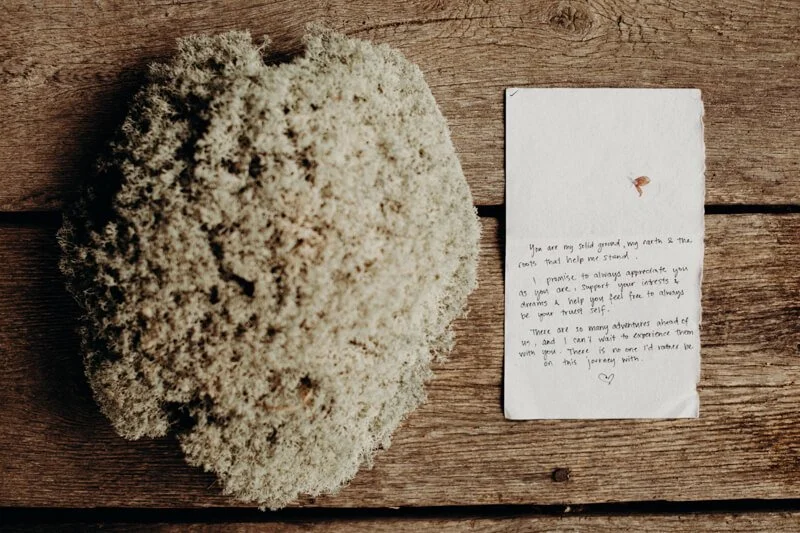 You are my solid ground, my earth & the
roots that help me stand.
I promise to always appreciate you
as you are, support your intrests &
dreams & help you feel free to always
be your truest self.
There are so many adventures ahead of
us, and I can't wait to experience them
with you. There is no one I'd rather be
on this journey with.